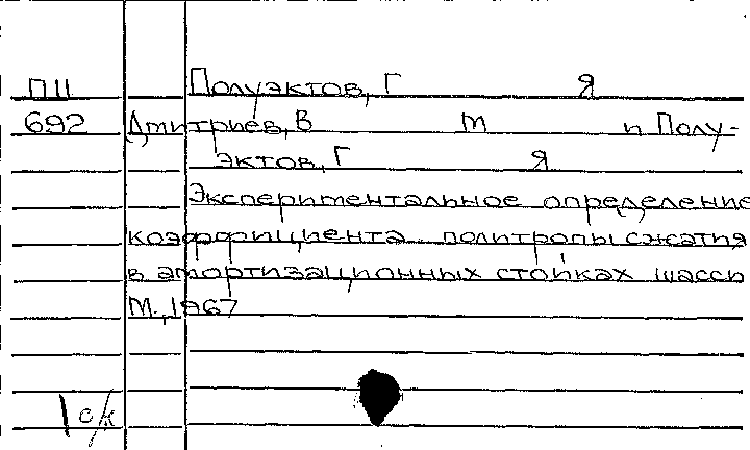 ПII Полуэктов, Г Я
692 Дмитриев, В М и Полу-
эктов, Г Я
Экспериментальное определение
коэффициента политропы сжатия
в амортизационных стойках шасси
М., 1967
1 с/к